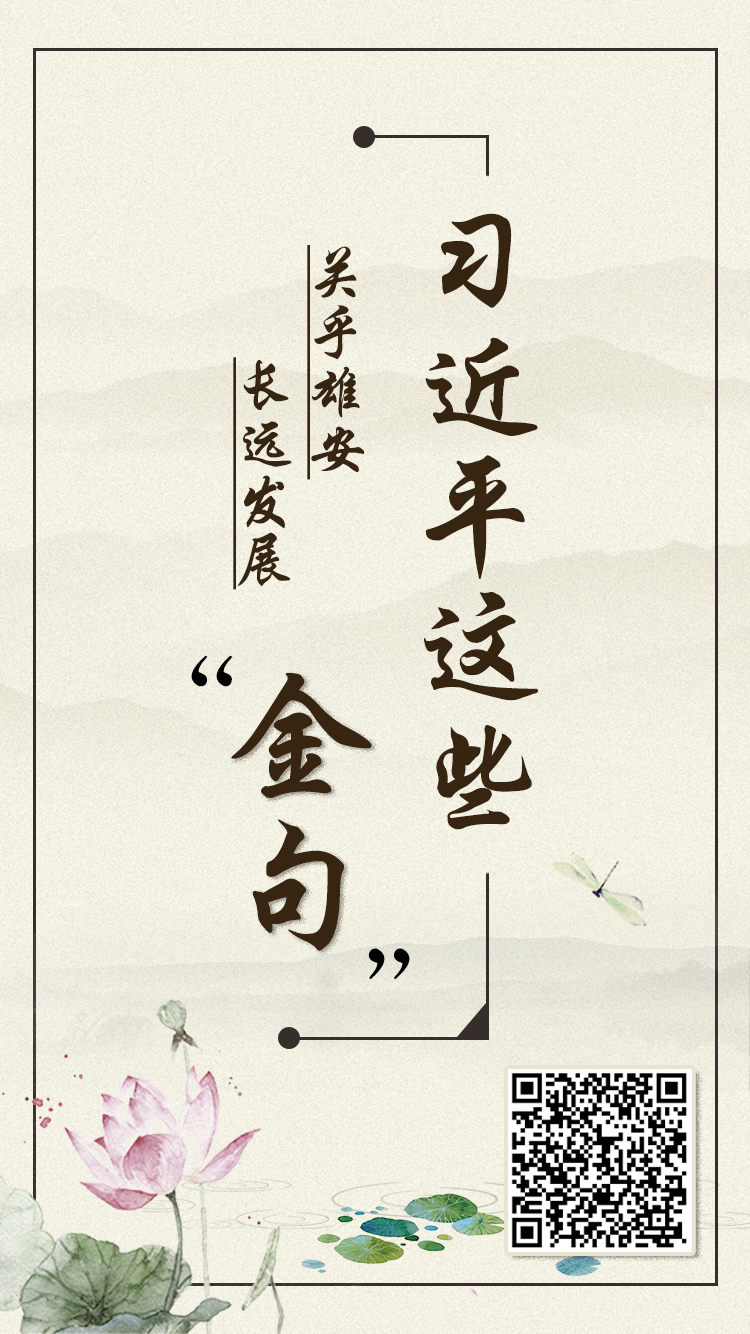 习近平这些
关乎雄安
长远发展
“金句”